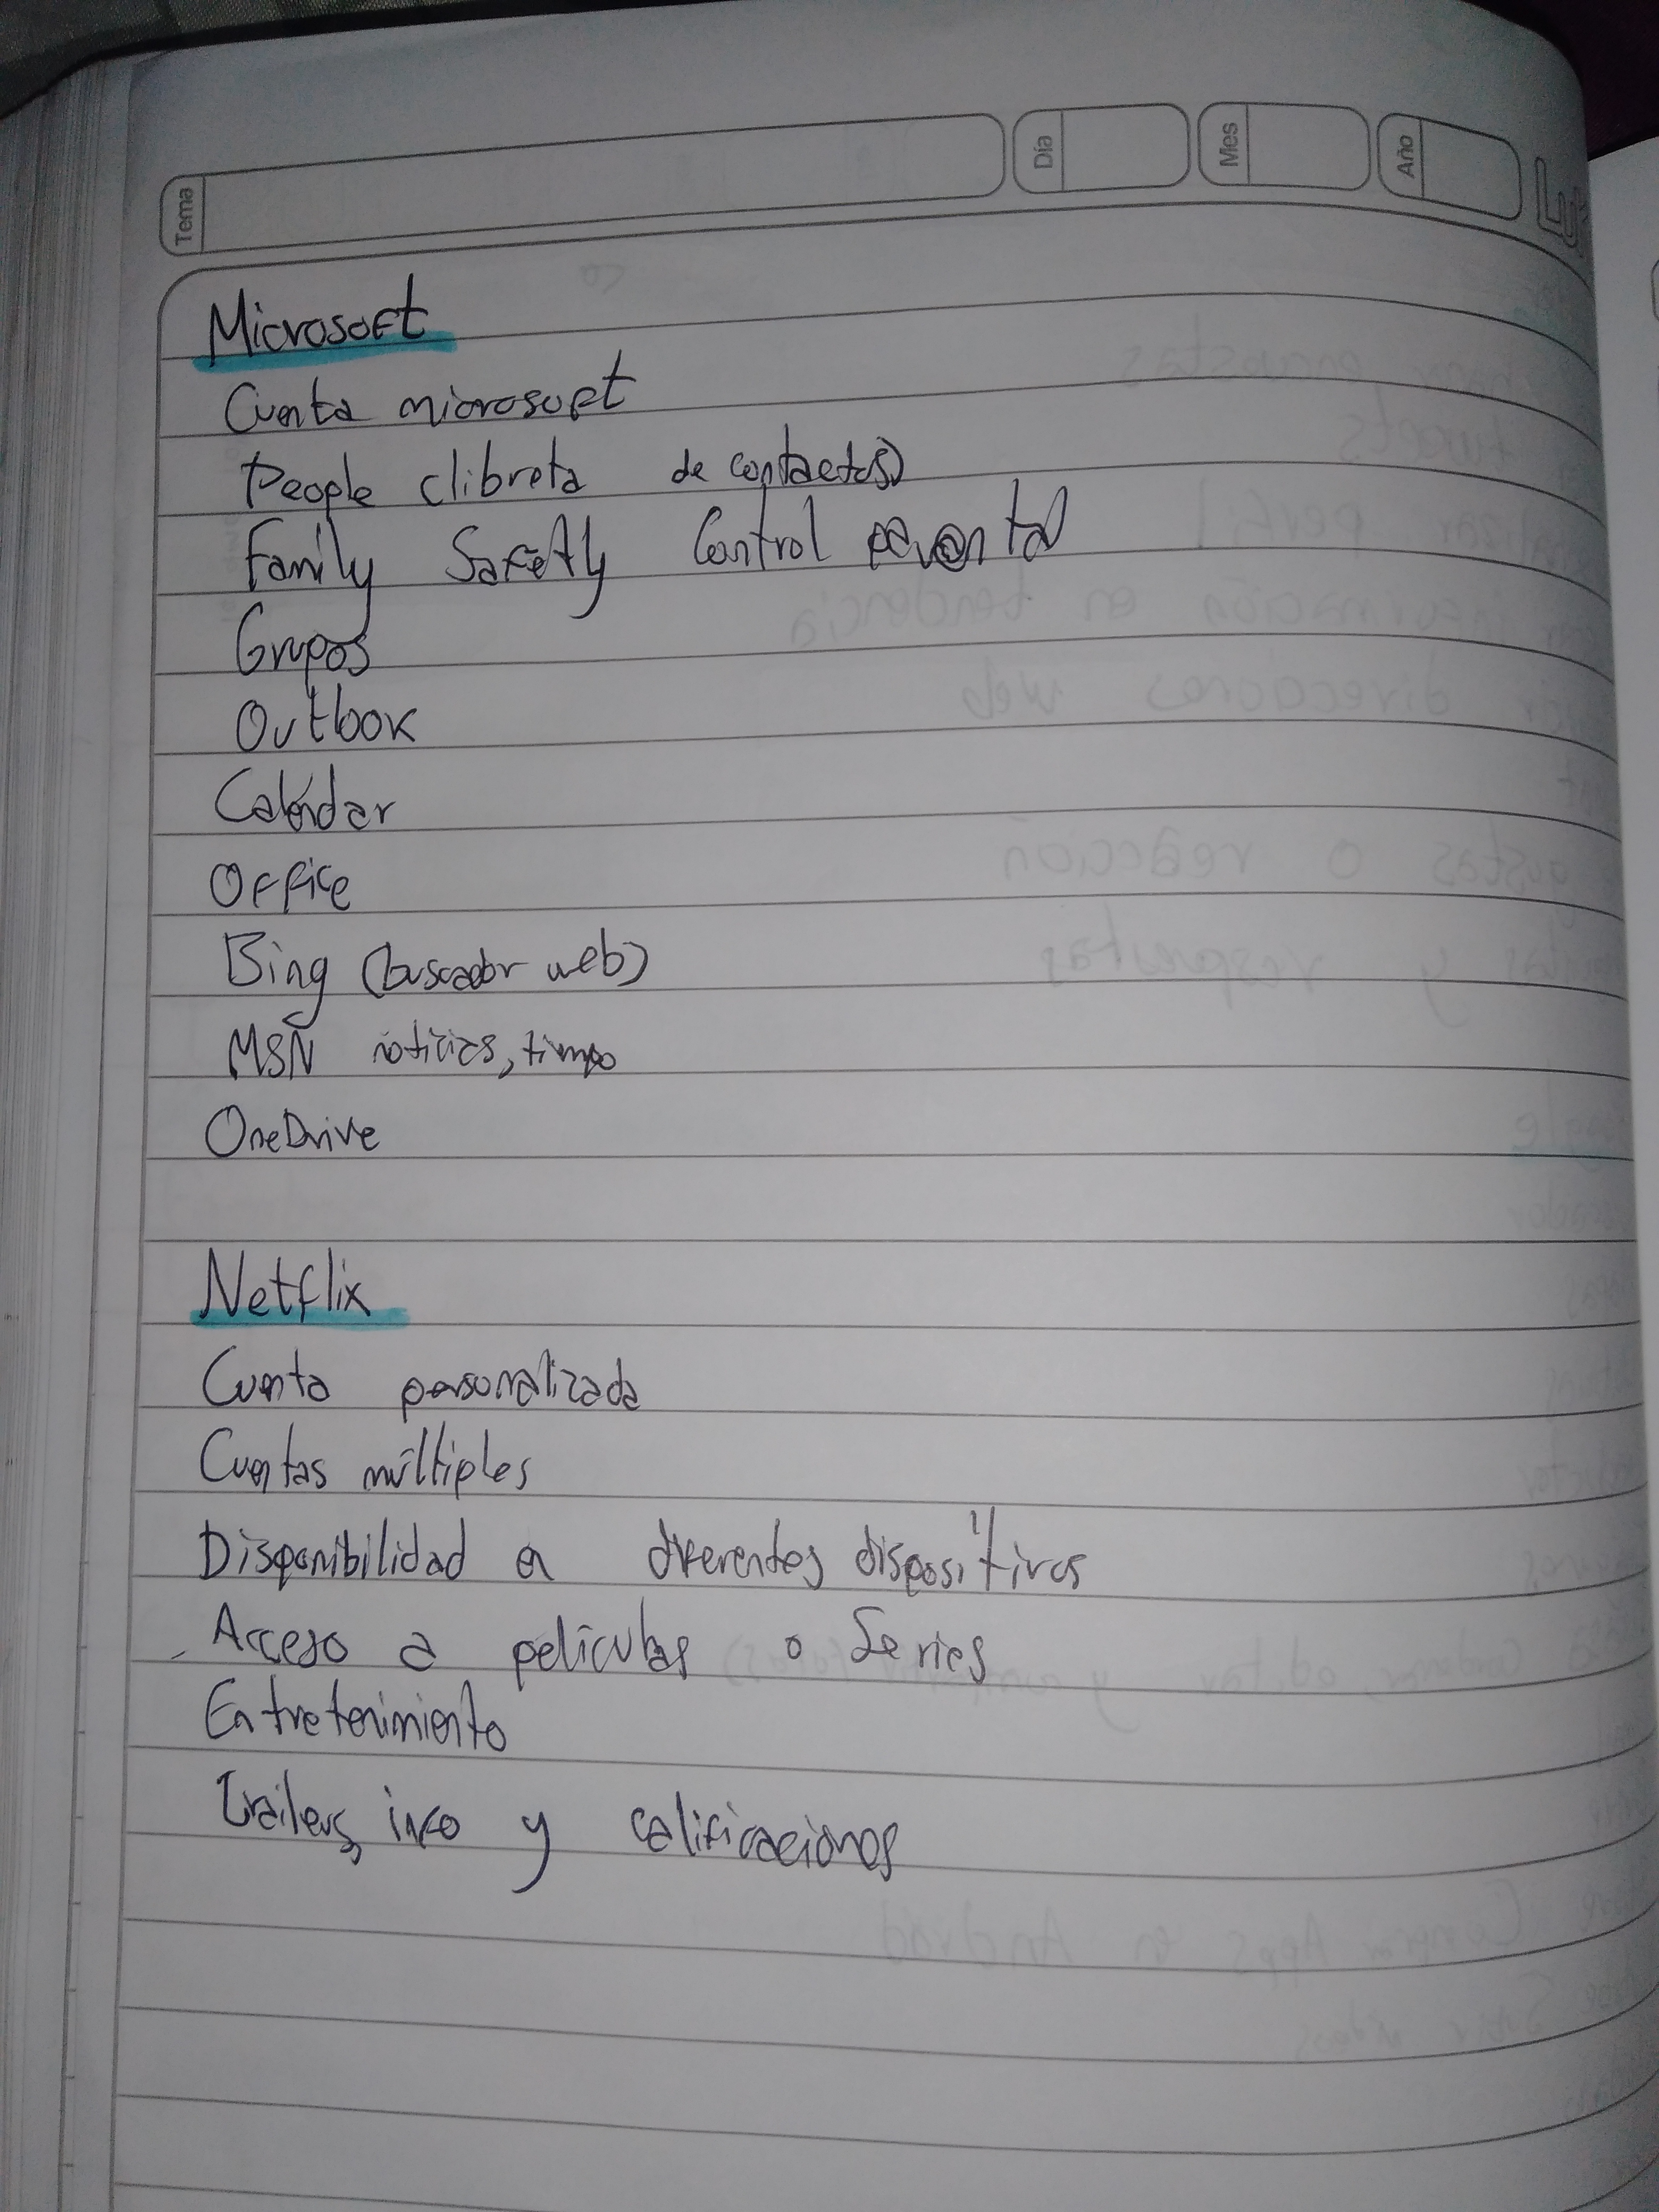 Tema
Día
Mes
Año
Microsoft
Cuenta microsoft
People (libreta de contactos)
Family Safetly Control parental
Grupos
Outlook
Caléndar
Office
Bing (buscador web)
MSN noticias, tiempo
OneDrive
Netflix
Cuenta personalizada
Cuentas múltiples
Disponibilidad en diferentes dispositivos
Acceso a películas o Series
Entretenimiento
Trailers, info y calificaciones